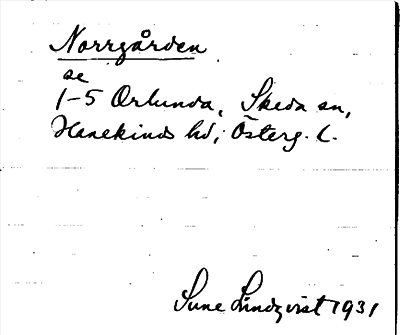 Norrgården
se
1-5 Orlunda, Skeda sn,
Hanekinds hd, Österg. l.
Sune Lindqvist 1931